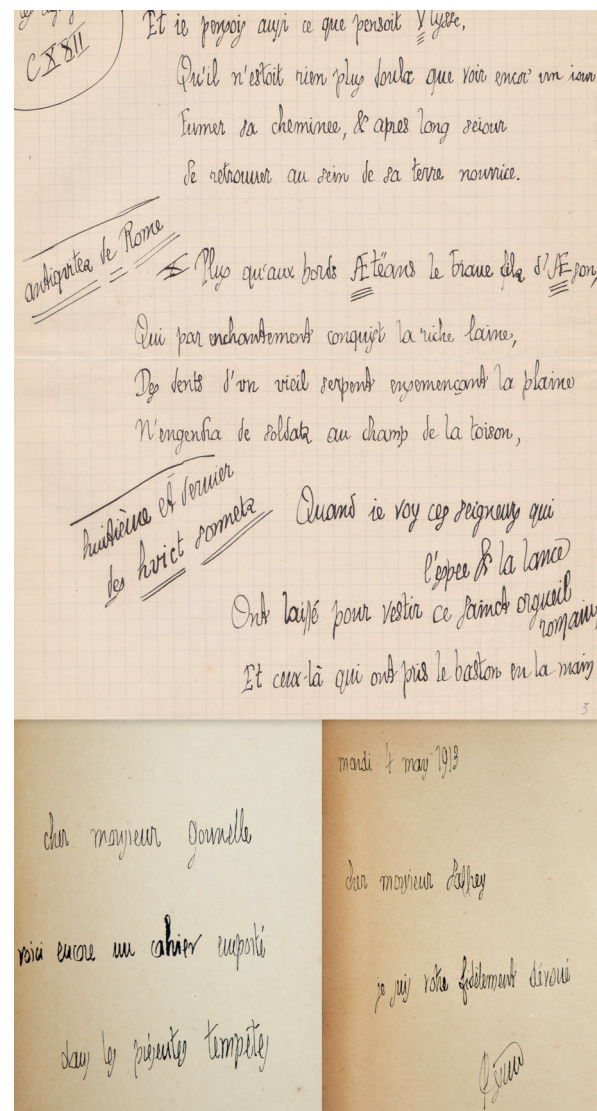 CXXII
Et ie pensoy aussi ce que pensoit Vlysse,
Qu'il n'estoit rien plus doulx que voir encor' vn iour
Fumer sa cheminee, & apres long seiour
Se retrouuer au sein de sa terre nourrice.
antiquitez de Rome
Plus qu'aux bords Ætëans le braue filz d'Æson,
Qui par enchantement conquist la riche laine,
Des dents d'vn vieil serpent ensemençant la plaine
N'engendra de soldatz au champ de la toison,
huitième et dernier
des huict sonnetz
Quand ie voy ces seigneurs qui
l'espee & la lance
Ont laissé pour vestir ce sainct orgueil
romain,
Et ceux-là qui ont pris le baston en la main
3
cher monsieur gounelle
voici encore un cahier emporté
dans les présentes tempêtes
mardi 4 may 1913
cher monsieur Saffrey
je suis votre fidèlement dévoué
Péguy